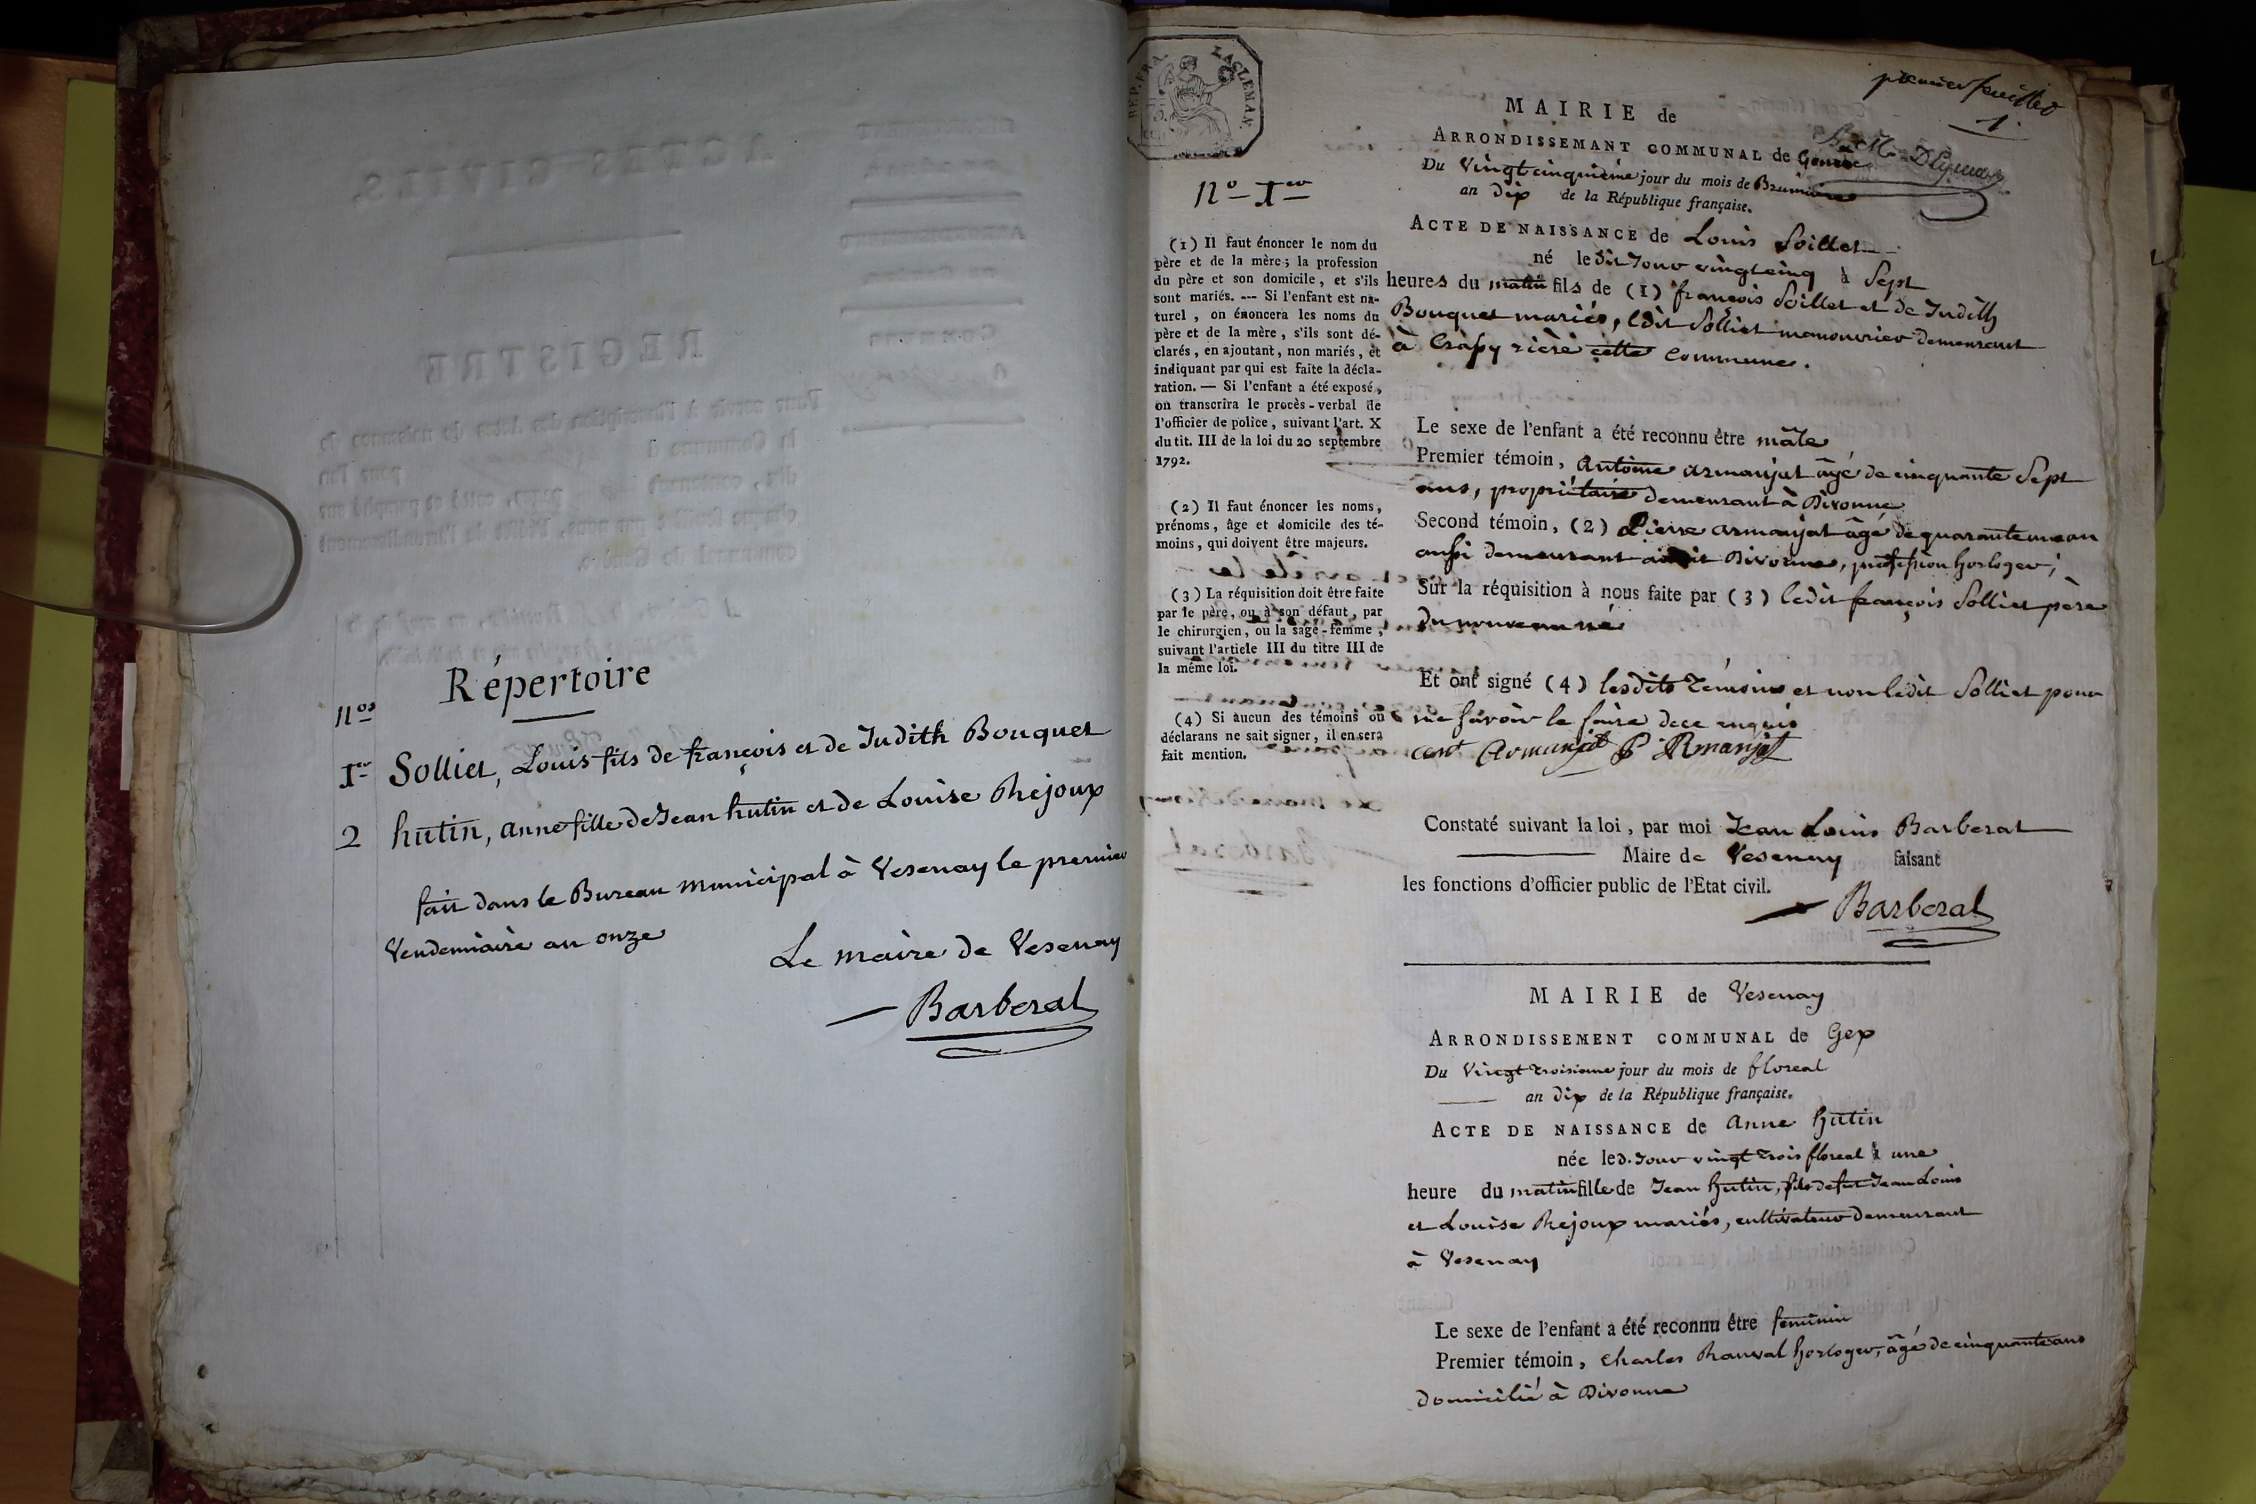 Répertoire
Nos
Ier Solliet, Louis fils de françois et de Judith Bouquet
2 hutin, anne fille de Jean hutin et de Louise Rejoux
fait dans le Bureau municipal à Vesenay le premier
Vendemiaire an onze
Le maire de Vesenay
Barberat
REP. FRA.
premier feuillet
1.
No Ier
(1) Il faut énoncer le nom du
père et de la mère; la profession
du père et son domicile, et s'ils
sont mariés. --- Si l'enfant est na-
turel, on énoncera les noms du
père et de la mère, s'ils sont dé-
clarés, en ajoutant, non mariés, et
indiquant par qui est faite la décla-
ration. — Si l'enfant a été exposé,
on transcrira le procès-verbal de
l'officier de police, suivant l'art. X
du tit. III de la loi du 20 septembre
1792.
(2) Il faut énoncer les noms,
prénoms, âge et domicile des té-
moins, qui doivent être majeurs.
(3) La réquisition doit être faite
par le père, ou à son défaut, par
le chirurgien, ou la sage-femme,
suivant l'article III du titre III de
la même loi.
(4) Si aucun des témoins ou
déclarans ne sait signer, il en sera
fait mention.
MAIRIE de
ARRONDISSEMANT COMMUNAL de
Du Vingt cinquième jour du mois de Brumaire
an dix de la République française.
ACTE DE NAISSANCE de Louis Soillet
né le dit Jour vingt cinq à Sept
heures du matin fils de (1) françois Soillet et de Judith
Bouquet mariés, ledit Solliet manouvrier demeurant
à Crassy rière cette commune.
Le sexe de l'enfant a été reconnu être mâle
Premier témoin, antoine armanjat âgé de cinquante Sept
ans, propriétaire demeurant à Divonne
Second témoin, (2) Pierre armanjat âgé de quarante un an
aussi demeurant audit Divonne, profession horloger;
Sur la réquisition à nous faite par (3) ledit françois Solliet père
du nouveau né
Et ont signé (4) lesdits témoins et non ledit Solliet pour
ne savoir le faire de ce enquis
ant Armanjat P Armanjat
Constaté suivant la loi, par moi Jean Louis Barberat
Maire de Vesenay faisant
les fonctions d'officier public de l'Etat civil.
Barberat
MAIRIE de Vesenay
ARRONDISSEMENT COMMUNAL de Gex
Du Vingt troisieme jour du mois de floreal
an dix de la République française.
ACTE DE NAISSANCE de anne hutin
née led. Jour vingt trois floreal à une
heure du matin fille de Jean hutin, fils de feu Jean Louis
et Louise Rejoux mariés, cultivateur demeurant
à Vesenay
Le sexe de l'enfant a été reconnu être feminin
Premier témoin, charles Rauval horloger, âgé de cinquante ans
domicilié à Divonne